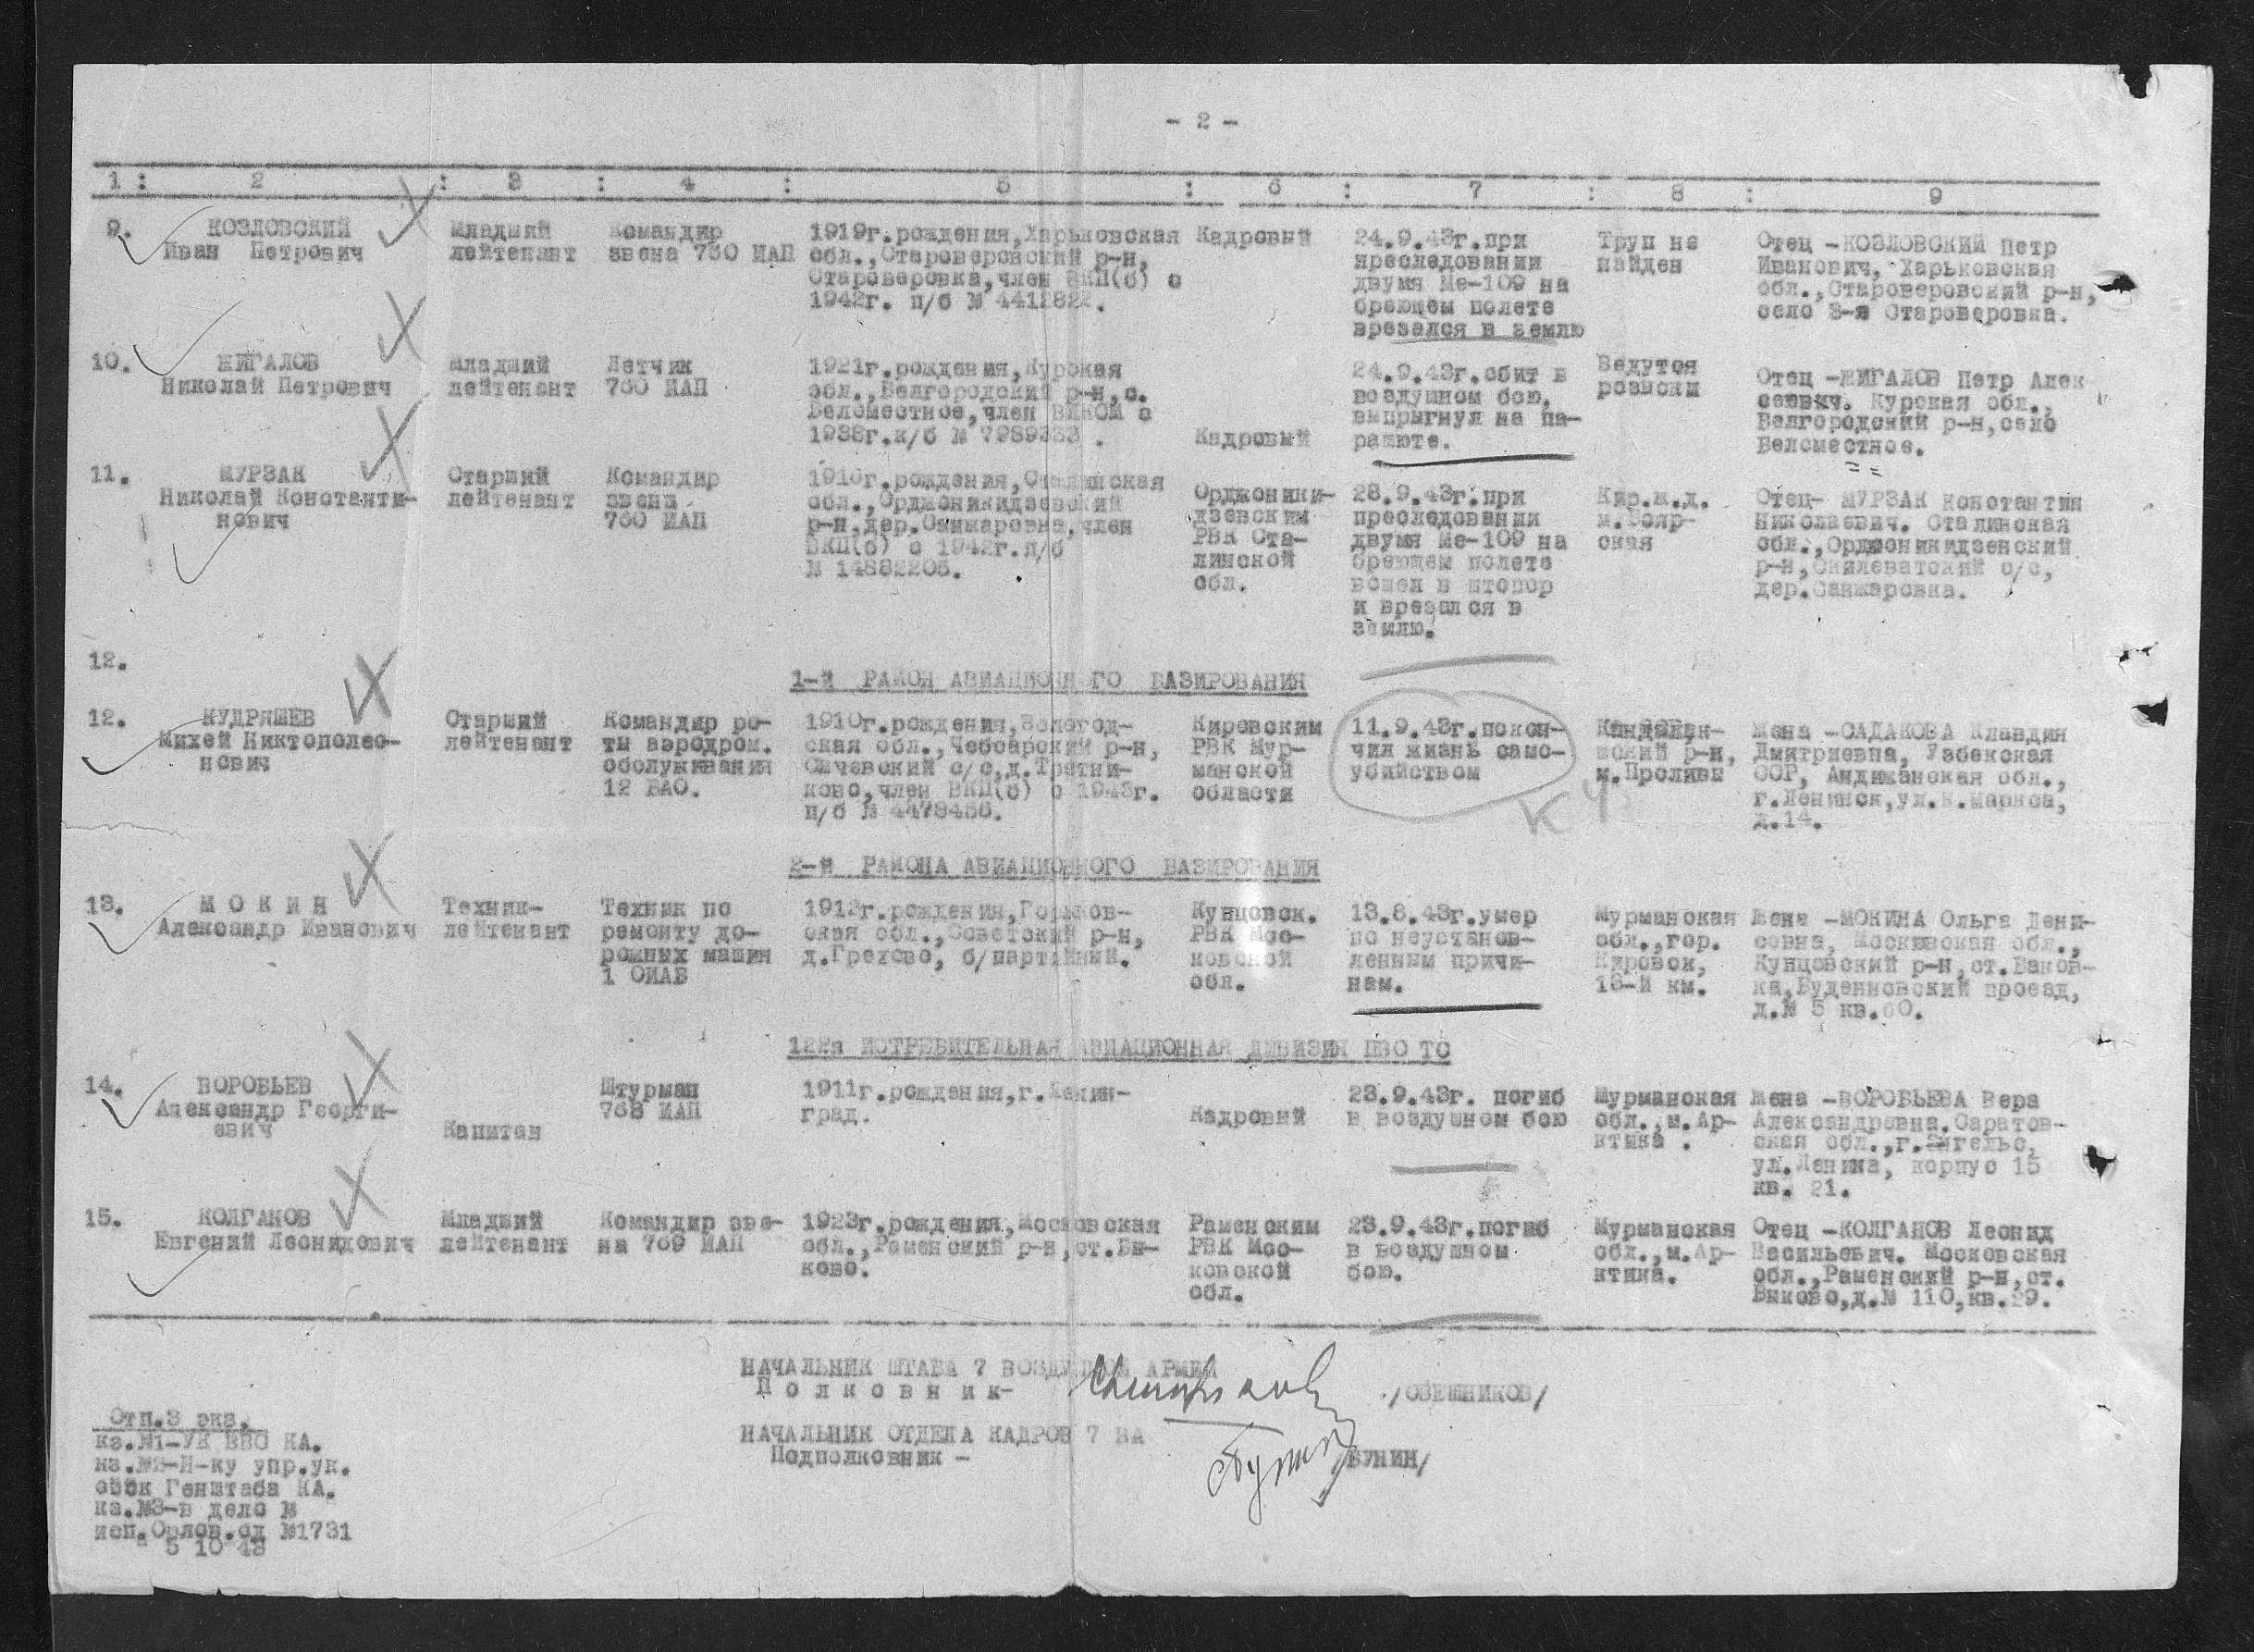 - 2 -
1 : 2 : 3 : 4 : 5 : 6 : 7 : 8 : 9
9. КОЗЛОВСКИЙ
Иван Петрович
Младший
лейтенант
Командир
звена 760 ИАП
1919г.рождения,Харьковская
обл.,Староверовский р-н,
Староверовка,член ВКП(б) с
1942г. п/б № 4412822.
Кадровый
24.9.43г.при
преследовании
двумя Ме-109 на
бреющем полете
врезался в землю
Труп не
найден
Отец -КОЗЛОВСКИЙ Петр
Иванович, Харьковская
обл.,Староверовский р-н,
село 3-я Староверовка.
10. ЖИГАЛОВ
Николай Петрович
Младший
лейтенант
Летчик
760 ИАП
1921г.рождения,Курская
обл.,Белгородский р-н,с.
Беломестное,член ВЛКСМ с
1938г.к/б № 7989333 .
Кадровый
24.9.43г.сбит в
воздушном бою,
выпрыгнул на па-
рашюте.
Ведутся
розыски
Отец -ЖИГАЛОВ Петр Алек
сеевич. Курская обл.,
Белгородский р-н,село
Беломестное.
11. МУРЗАК
Николай Константи-
нович
Старший
лейтенант
Командир
звена
760 ИАП
1916г.рождения,Сталинская
обл.,Орджоникидзевский
р-н,дер.Санжаровка,член
ВКП(б) с 1942г.п/б
№ 14882206.
Орджоники-
дзевским
РВК Ста-
линской
обл.
28.9.43г.при
преследовании
двумя Ме-109 на
бреющем полете
вошел в штопор
и врезался в
землю.
Кир.ж.д.
м.Бояр-
ская
Отец- МУРЗАК Константин
Николаевич. Сталинская
обл.,Орджоникидзенский
р-н,Скилеватский с/с,
дер.Санжаровка.
12.
1-й РАЙОН АВИАЦИОННОГО БАЗИРОВАНИЯ
12. КУДРЯШЕВ
Михей Никтополео-
нович
Старший
лейтенант
Командир ро-
ты аэродром.
обслуживания
12 БАО.
1910г.рождения,Вологод-
ская обл.,Чебсарский р-н,
с/с,д.Третни-
ково,член ВКП(б) с 1943г.
п/б № 4478456.
Кировским
РВК Мур-
манской
области
11.9.43г.покон-
чил жизнь само-
убийством
шский р-н,
м.Проливы
Жена -САДАКОВА Клавдия
Дмитриевна, Узбекская
ССР, Андижанская обл.,
г.Ленинск,ул.К.Маркса,
д.14.
2-й РАЙОНА АВИАЦИОННОГО БАЗИРОВАНИЯ
13. М О К И Н
Александр Иванович
Техник-
лейтенант
Техник по
ремонту до-
рожных машин
1 ОИАБ
1912г.рождения,Горьков-
ская обл.,Советский р-н,
д.Грехово, б/партийный.
Кунцовск.
РВК Мос-
ковской
обл.
13.8.43г.умер
по неустанов-
ленным причи-
нам.
Мурманская
обл.,гор.
Кировск,
13-й км.
Жена -МОКИНА Ольга Дени-
совна, Московская обл.,
Кунцовский р-н,ст.Баков-
ка,Буденновский проезд,
д.№ 5 кв.60.
122я ИСТРЕБИТЕЛЬНАЯ АВИАЦИОННАЯ ДИВИЗИЯ ПВО ТС
14. ВОРОБЬЕВ
Александр Георги-
евич
Капитан
Штурман
768 ИАП
1911г.рождения,г.Ленин-
град.
Кадровый
23.9.43г. погиб
в воздушном бою
Мурманская
обл.,м.Ар-
ктика .
Жена -ВОРОБЬЕВА Вера
Александровна.Саратов-
ская обл.,г.Энгельс,
ул.Ленина, корпус 15
кв. 21.
15. КОЛГАНОВ
Евгений Леонидович
Младший
лейтенант
Командир зве-
на 769 ИАП
1923г.рождения,Московская
обл.,Раменский р-н,ст.Бы-
ково.
Раменским
РВК Мос-
ковской
обл.
23.9.43г.погиб
в воздушном
бою.
Мурманская
обл.,м.Ар-
ктика.
Отец -КОЛГАНОВ Леонид
Васильевич. Московская
обл.,Раменский р-н,ст.
Быково,д.№ 110,кв.29.
НАЧАЛЬНИК ШТАБА 7 ВОЗДУШНОЙ АРМИИ
П о л к о в н и к-
/СВЕШНИКОВ/
НАЧАЛЬНИК ОТДЕЛА КАДРОВ 7 ВА
Подполковник -
/БУНИН/
Отп.3 экз.
кз.№1-УК ВВС КА.
кз.№2-Н-ку упр.ук.
Генштаба КА.
кз.№3-в дело №
исп.Орлов.сд №1731
5 10 43